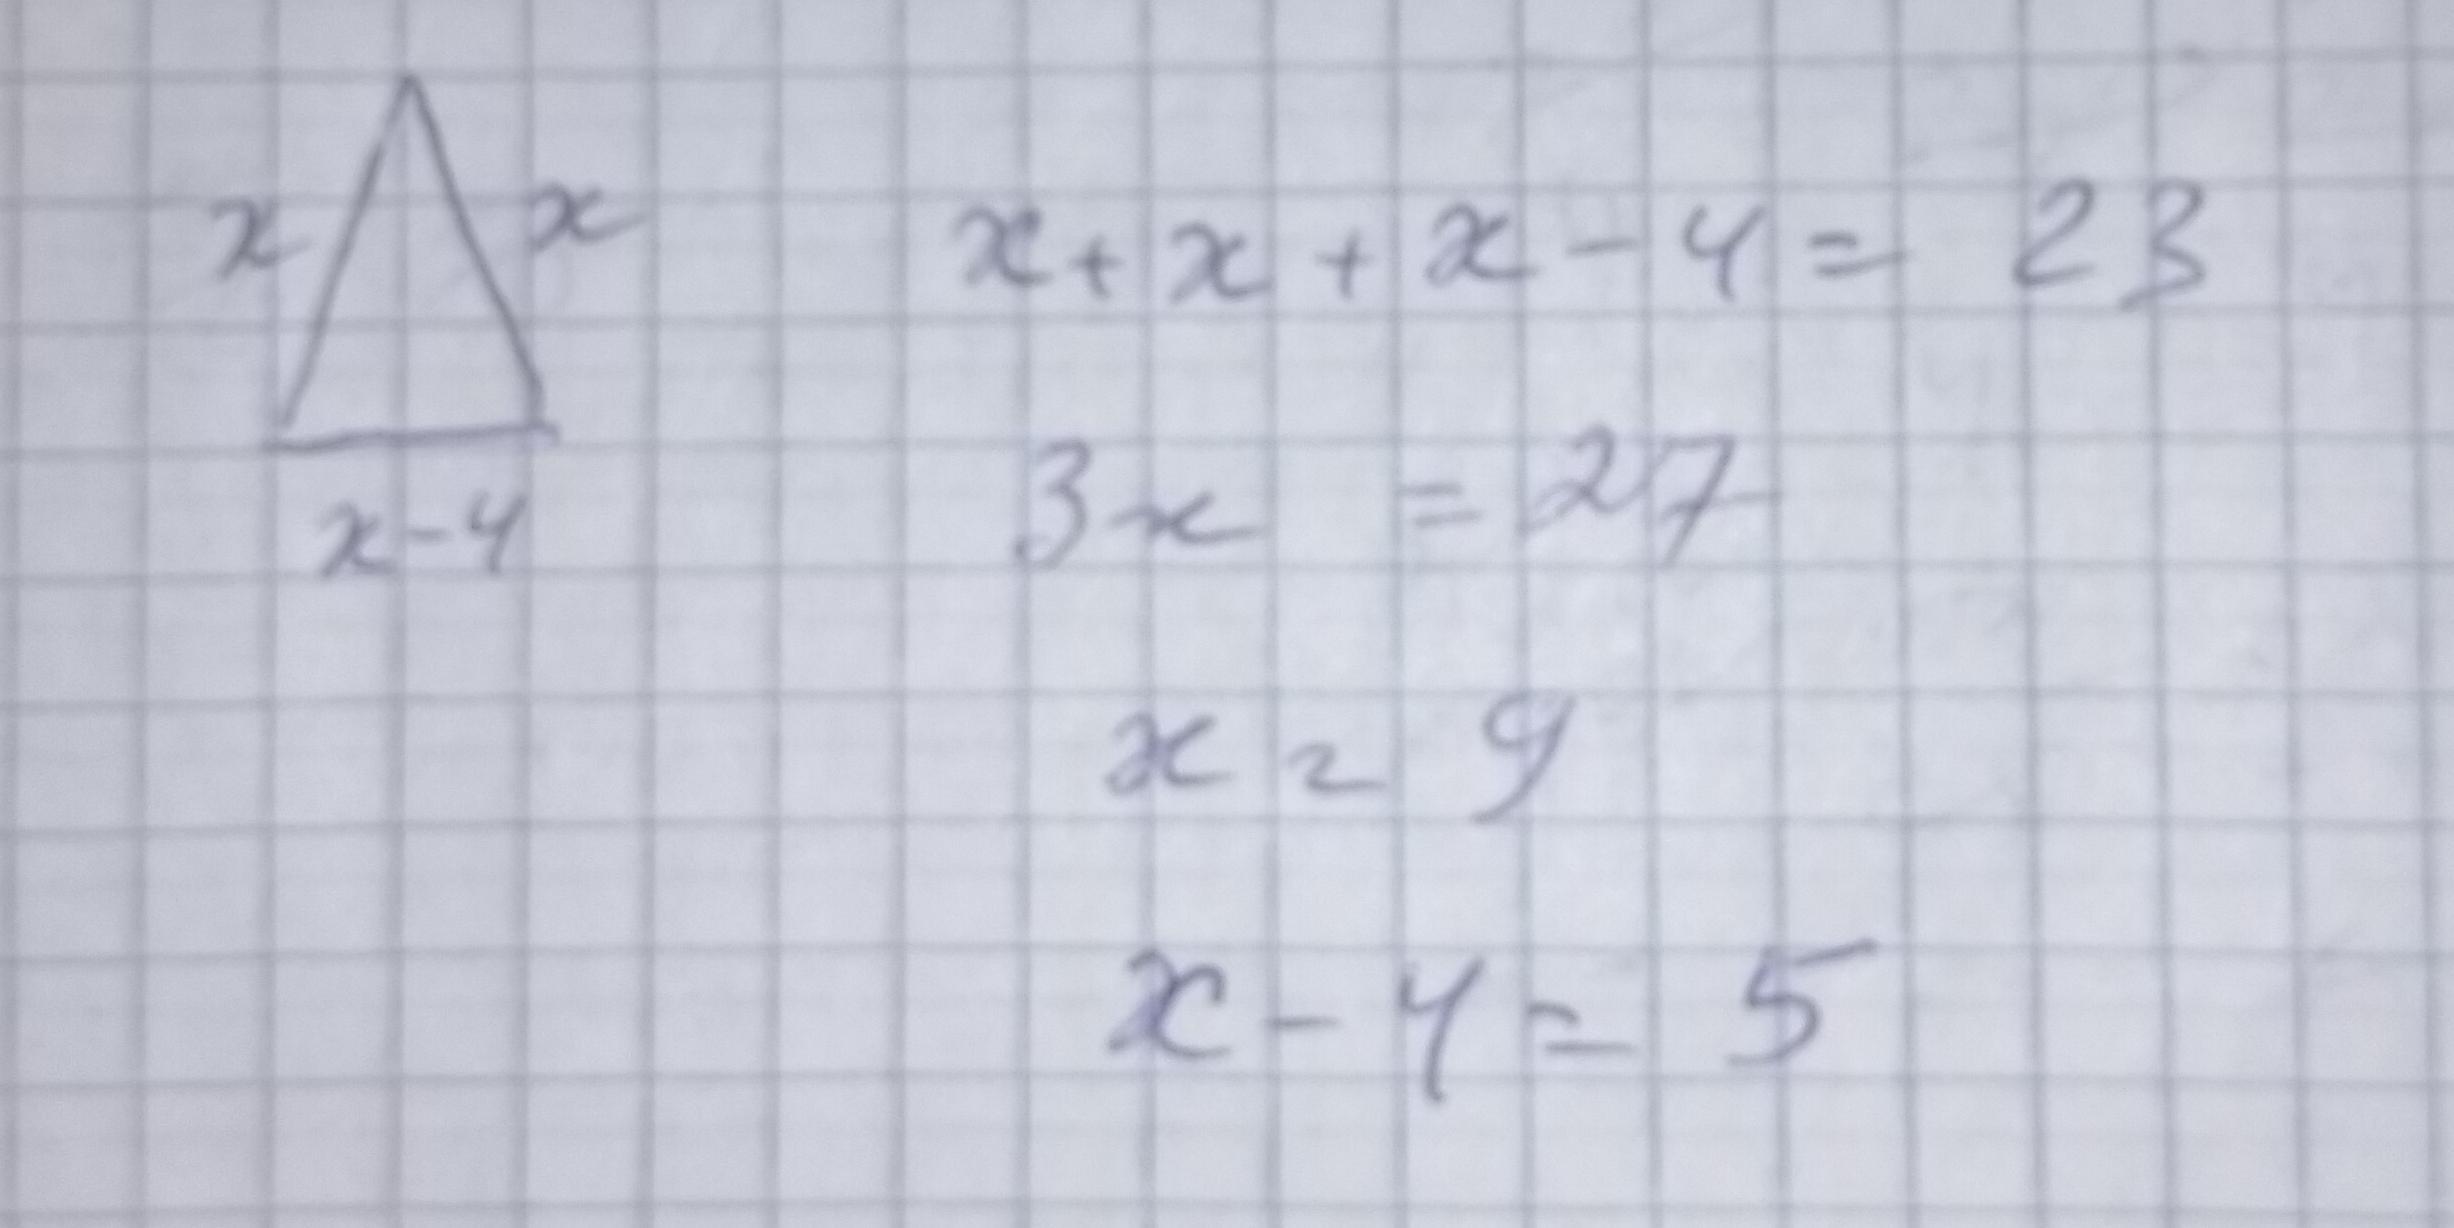 x x
x-4
x+x+x-4=23
3x=27
x=9
x-4=5